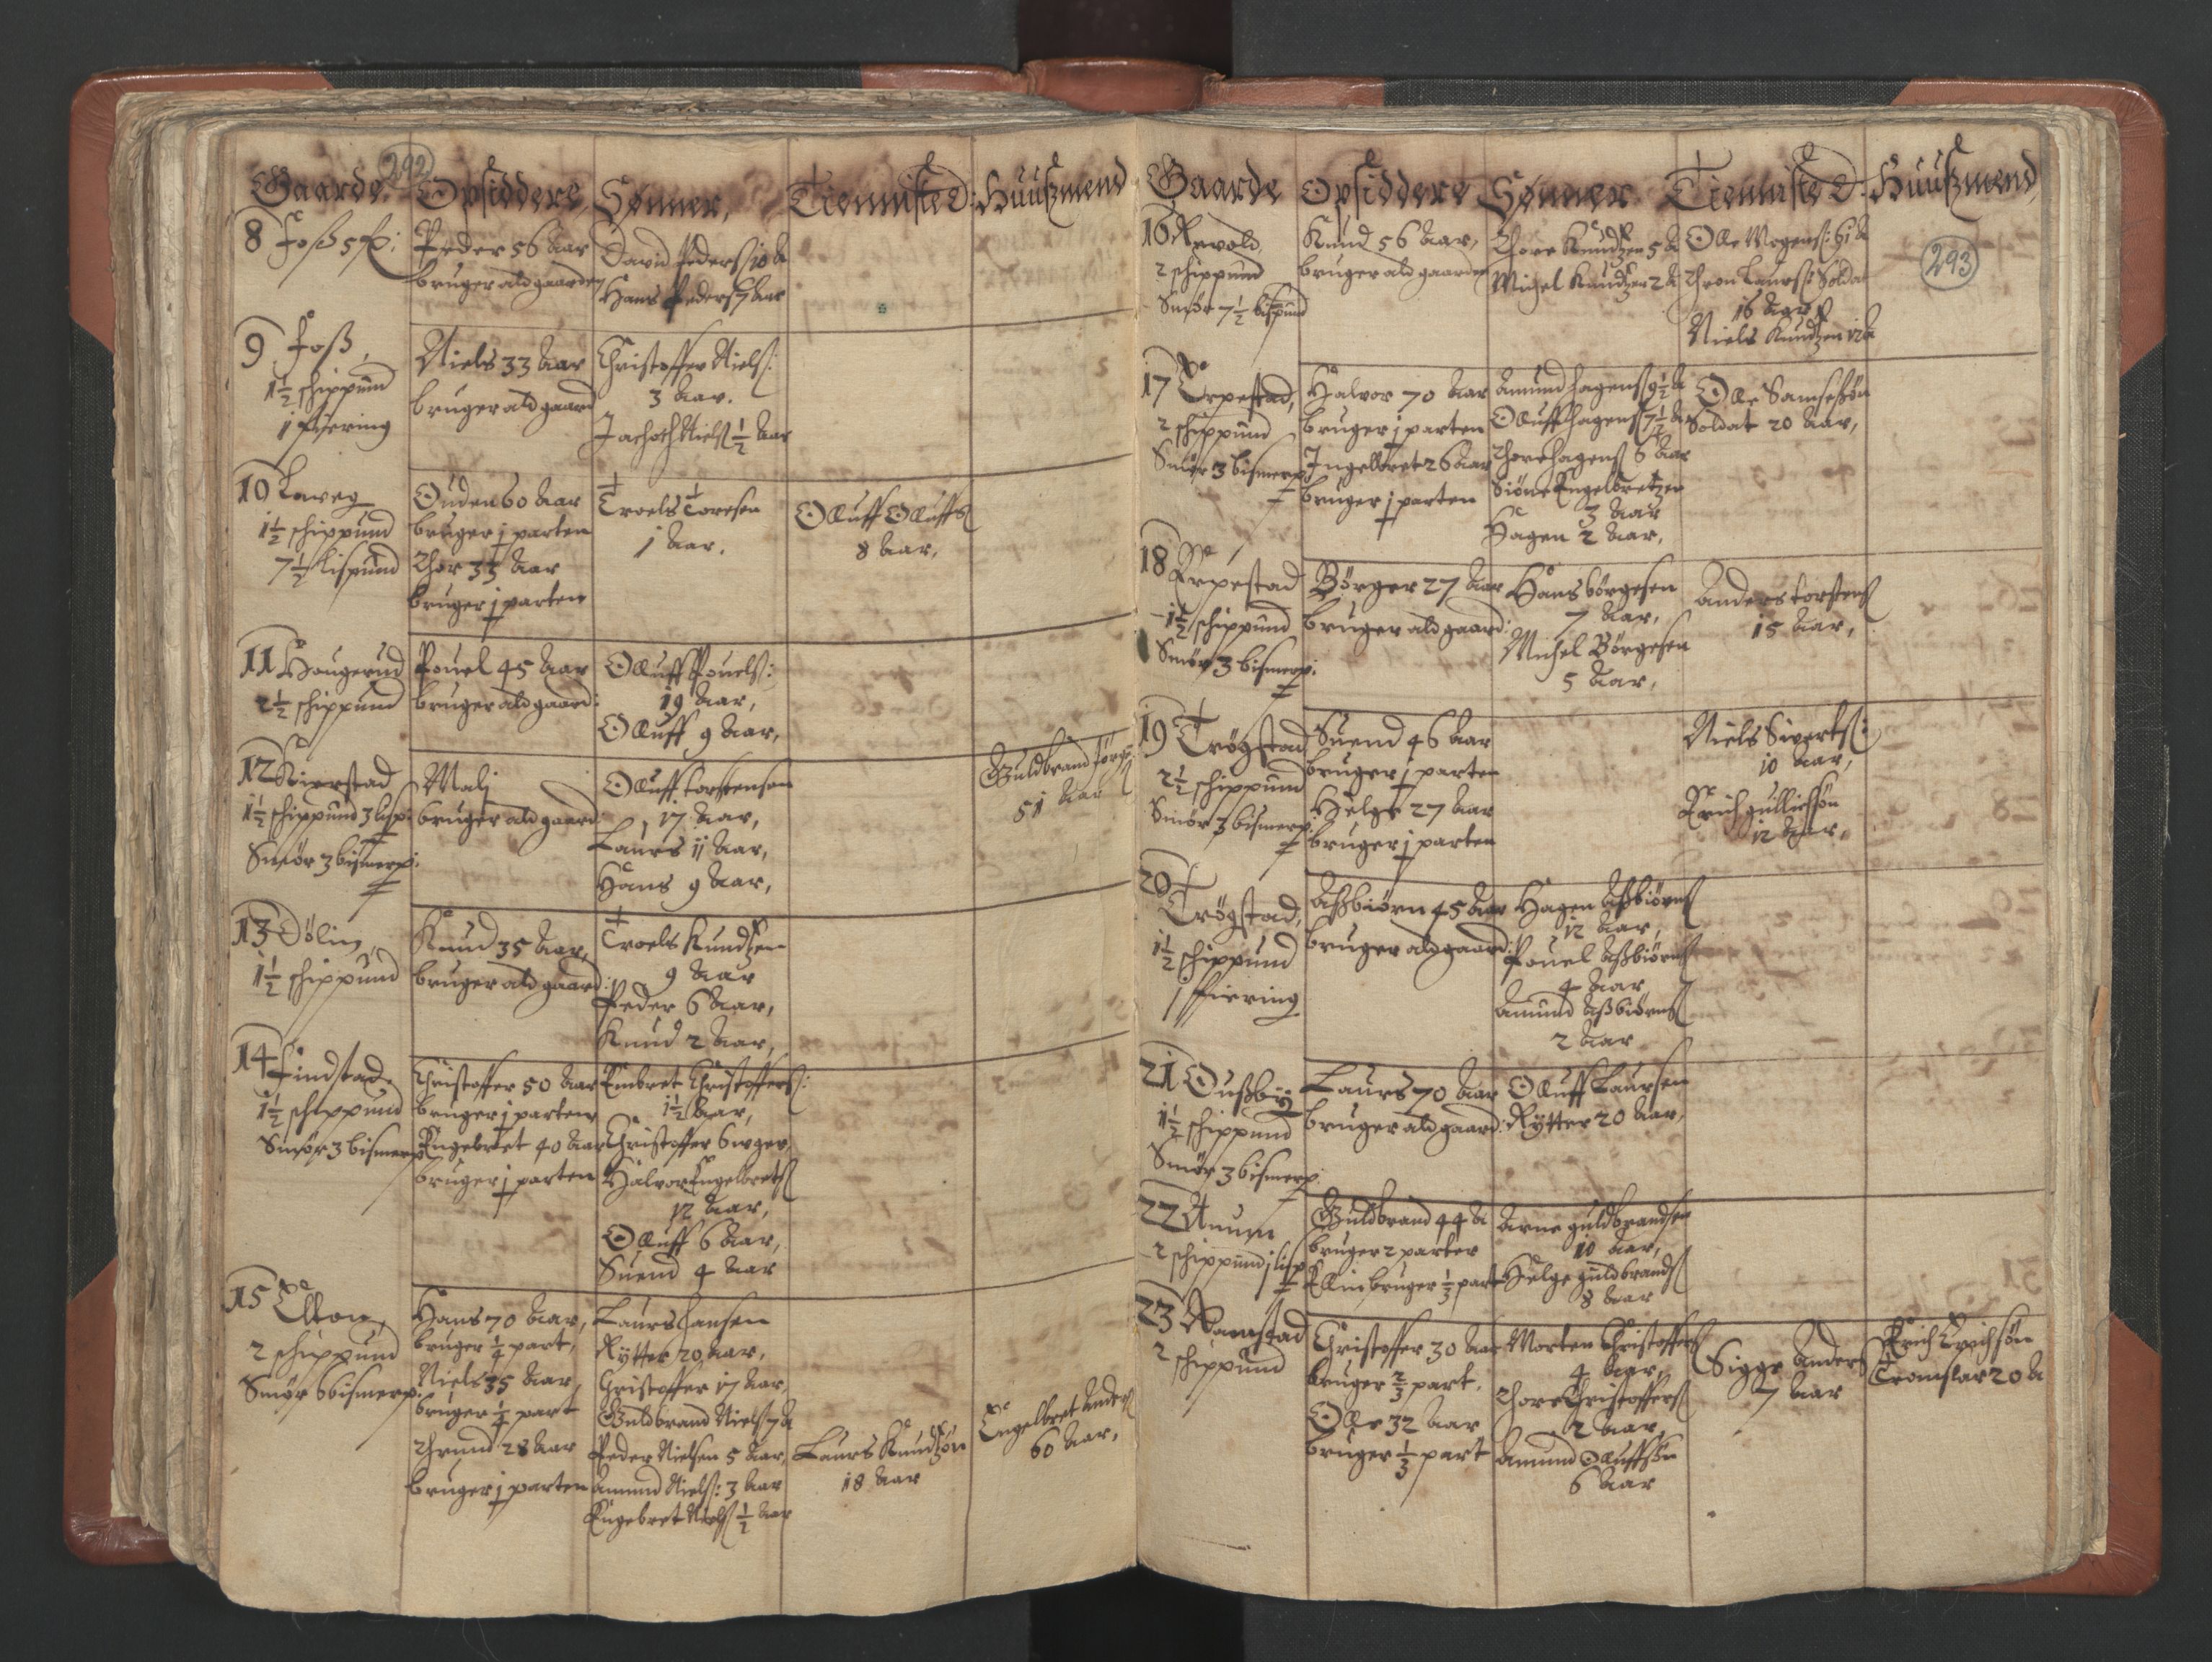 292
Gaarde, Opsiddere, Sønner, Tiennisted: Huußmend
8 Foss 5 ß:
Peder 56 Aar
bruger ald gaarden
David Pederß 10 A
Hans Pederß 7 Aar
9 Foss,
1½ schippund
1 fiering
Niels 33 Aar
bruger ald gaard
Christoffer Nielß:
3 Aar.
Jachoch Nielß ½ Aar
10
1½ schippund
7½ lispund
Ouden 60 Aar
bruger j parten
Thor 33 Aar
bruger j parten
Troels Toresen
1 Aar.
Oluff Oluffß
8 Aar,
11 Haugerud
2½ schippund
Pouel 45 Aar
bruger ald gaard:
Oluff Pouelß:
19 Aar,
Oluff 9 Aar,
12 Kierstad
1½ schippund 3 lisp:
Smör 3 bismerp:
Malj
bruger ald gaard:
Oluff torstensen
17 Aar,
Laurs 11 Aar,
Hans 9 Aar,
Guldbrand
51 Aar
13 Dölin,
1½ schippund
Knud 35 Aar,
bruger ald gaard:
Troels Knudzen
9 Aar
Peder 6 Aar,
Knud 2 Aar,
14 Findstad
1½ schippund
Smör 3 bismerp
Christoffer 50 Aar
bruger j parten
Engebret 40 Aar
bruger j parten
Embret Christofferß:
1½ Aar,
Christoffer 6 uger
Halvor Engelbretß
12 Aar,
Oluff 6 Aar,
Suend 4 Aar
15 Elton,
2 schippund
Smör 6 bismerp:
Hans 70 Aar,
bruger ¼ part,
Niels 35 Aar,
bruger ¼ part
Thrund 28 Aar
bruger j parten
Laurs Hansen
Rytter 20 Aar,
Christoffer 17 Aar,
Guldbrand Nielß 7 A
Peder Nielsen 5 Aar,
Amund Nielß: 3 Aar
Engebret Nielß ½ Aar
Laurs Knudsön
18 Aar
Engelbret Anderß
60 Aar,
Gaarde Opsiddere Sønner Tiennisted: Huußmend
293
16 Revold
2 schippund
Smör 7½ bispund
Knud 56 Aar,
bruger ald gaarden
Thore Knudzen 5 A
Michel Knudzen 2 A
Olle Mogenß: 61 A
Thron Laurß: Soldat
16 Aar
Niels Knudzen 12 A
17 Erpestad,
2 schippund
Smör 3 bismerp
Halvor 70 Aar
bruger j parten
Ingelbret 26 Aar
bruger j parten
Amund Hagenß 9½ A
Oluff Hagenß 7½ A
Thore Hagenß 6 Aar
Siöne Engelbretzen
3 Aar
Hagen 2 Aar,
Olle Samsesön
Soldat 20 Aar,
18 Erpestad
1½ schippund
Smör 3 bismerp:
Börger 27 Aar
bruger ald gaard:
Hans börgesen
7 Aar,
Michel Börgesen
5 Aar,
Anders torstenß
15 Aar,
19 Trögstad
2½ schippund
Smör 3 bismerp:
Suend 46 Aar
bruger j parten
Helge 27 Aar
bruger j parten
Niels Sivertß:
10 Aar,
Erich gullichsön
12 Aar,
20
Trögstad,
1½ schippund
1 fiering
Aßbiörn 45 Aar
bruger ald gaard:
Hagen Aßbiörnß
12 Aar,
Pouel Aßbiörnß
4 Aar
Amund Aßbiörnß
2 Aar
21 Oußby
1½ schippund
Smör 3 bismerp:
Laurs 70 Aar
bruger ald gaard:
Oluff Laursen
Rytter 20 Aar,
22 Unum
2 schippund j lisp
Guldbrand 44 A
bruger 2 parter
Ellin bruger ⅓ part
Arne guldbrandsen
10 Aar,
Helge guldbrandß
8 Aar
23 Ramstad
2 schippund
Christoffer 30 Aar
bruger ⅔ part.
Olle 32 Aar
bruger ⅓ part
Morten Christofferß
4 Aar,
Thore Christofferß
2 Aar,
Amund Oluffsön
6 Aar
Sigge Anderß
7 Aar
Erich Erichsön
20 A